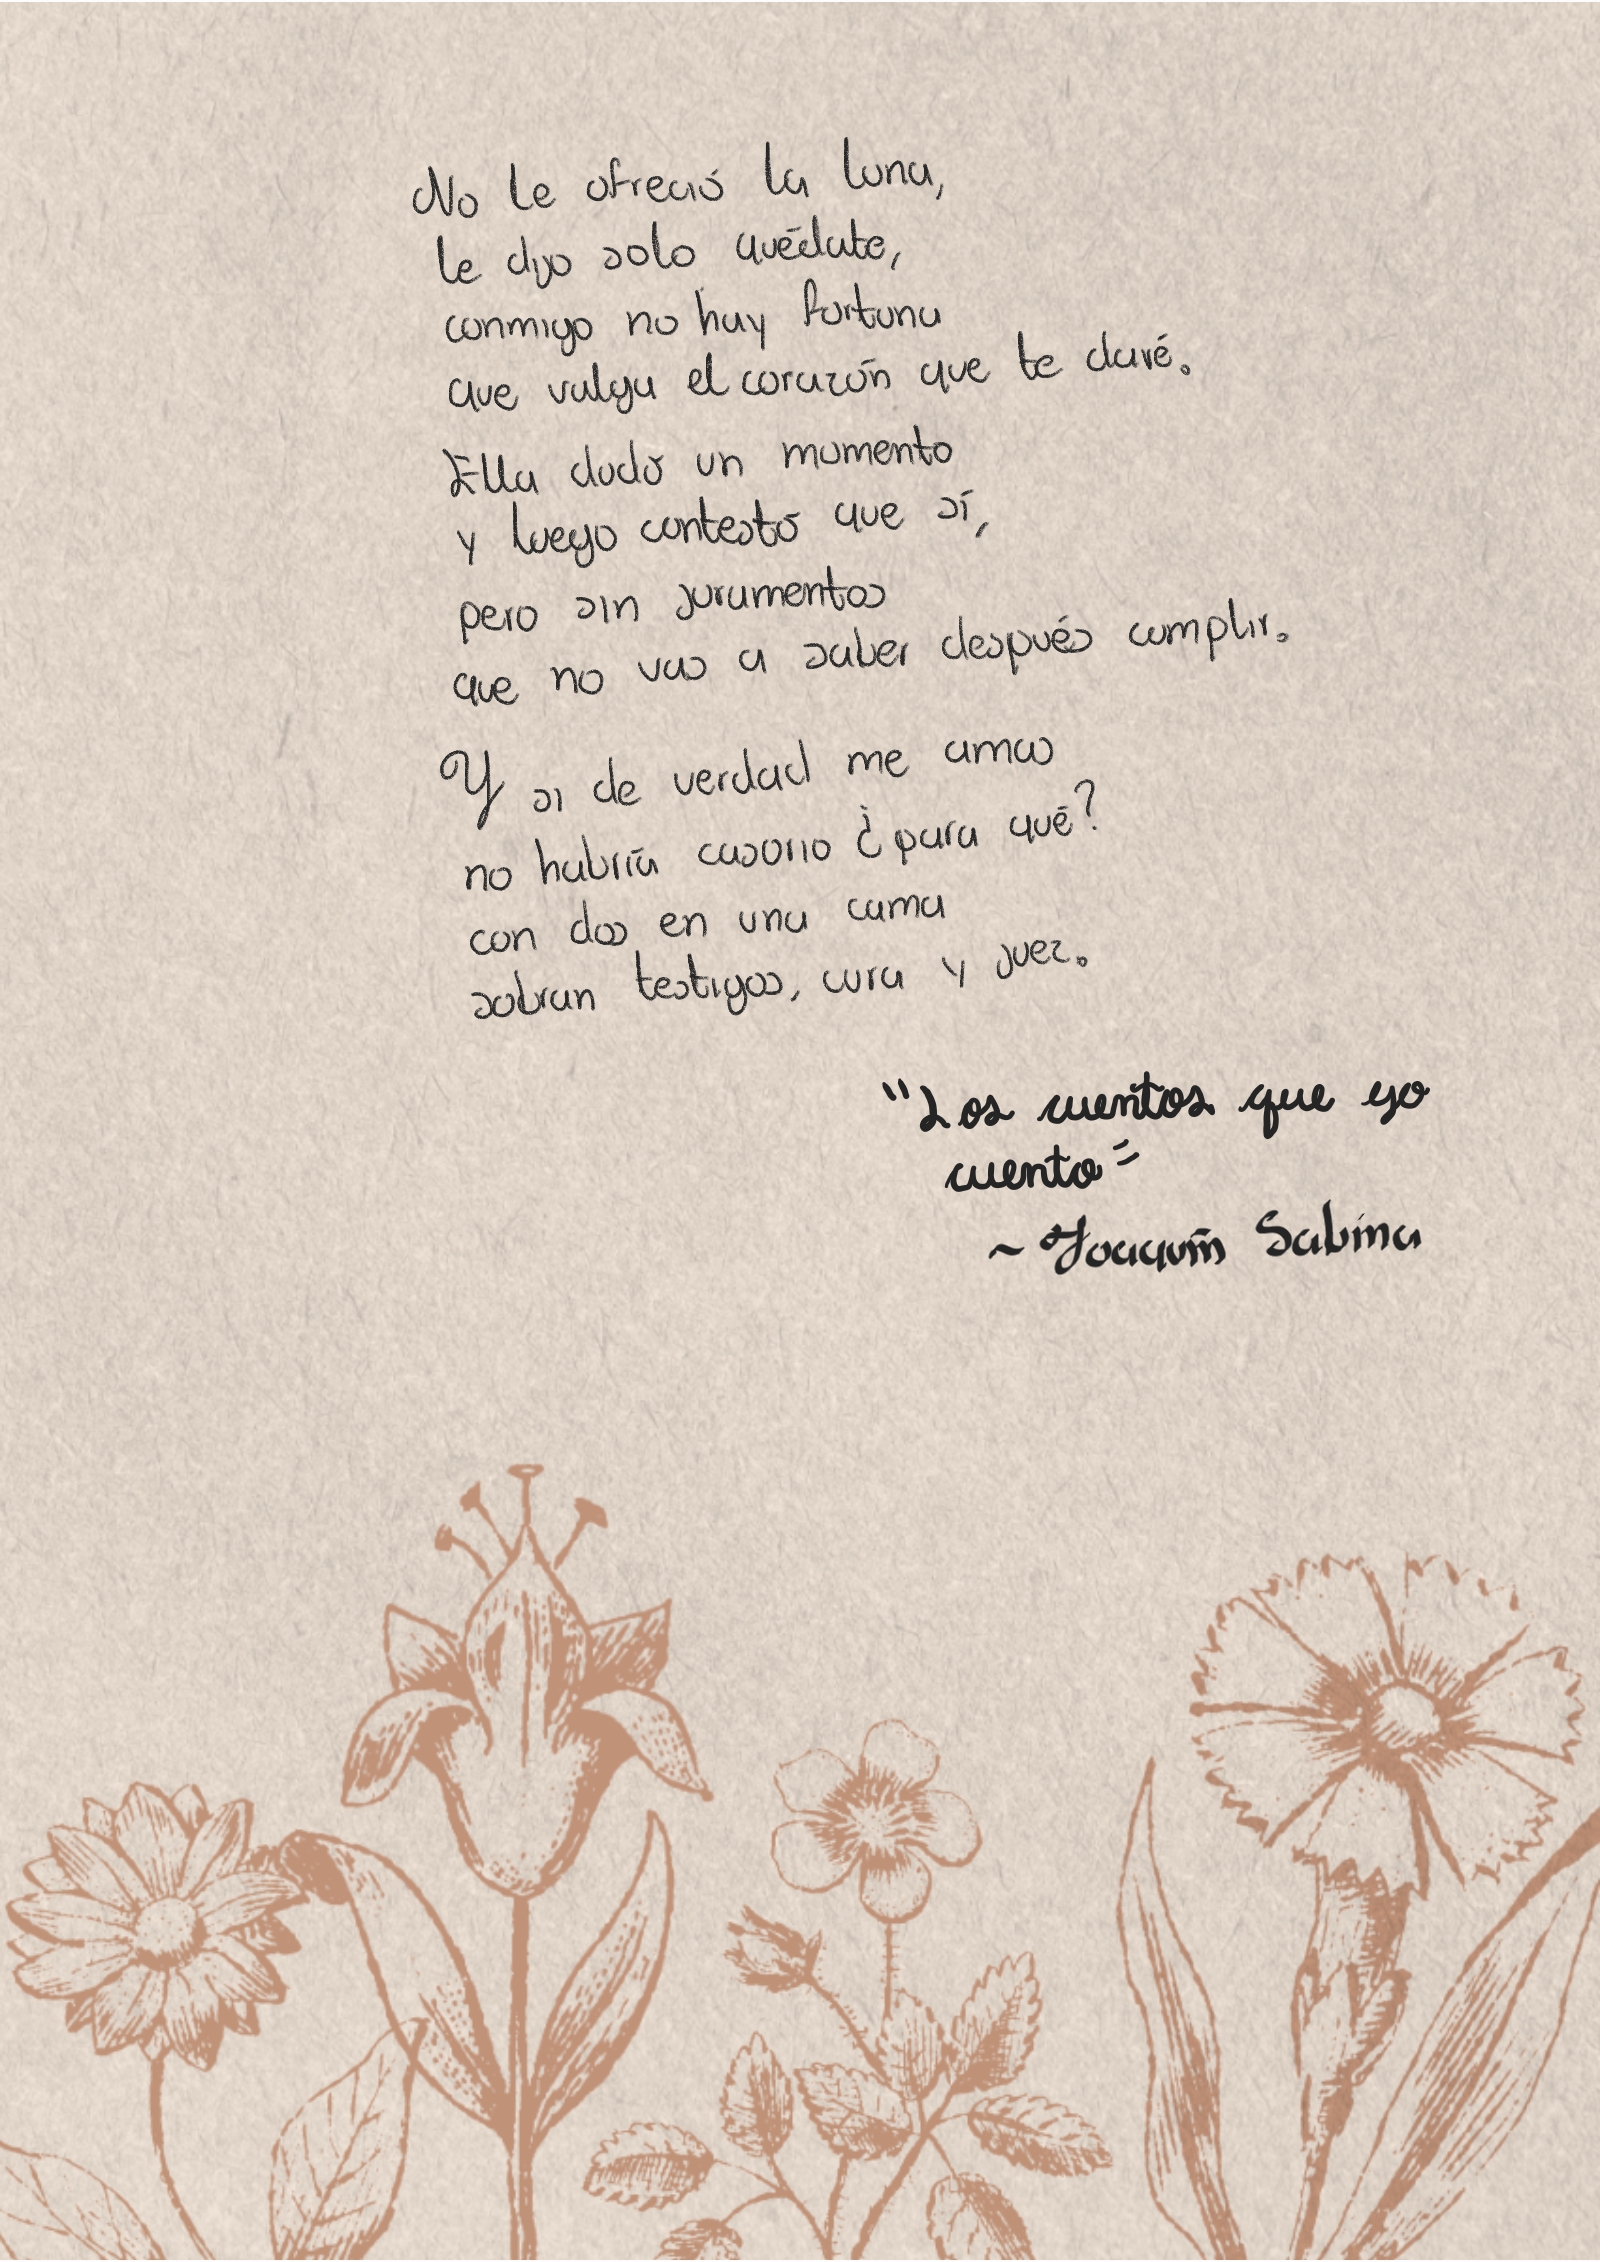 No le ofreció la luna,
le dijo solo quédate,
conmigo no hay fortuna
que valga el corazón que te daré.
Ella dudó un momento
y luego contestó que sí,
pero sin juramentos
que no vas a saber después cumplir.
Y si de verdad me amas
no habría casorio ¿para qué?
con dos en una cama
sobran testigos, cura y juez.
"Los cuentos que yo
cuento"
~ Joaquín Sabina